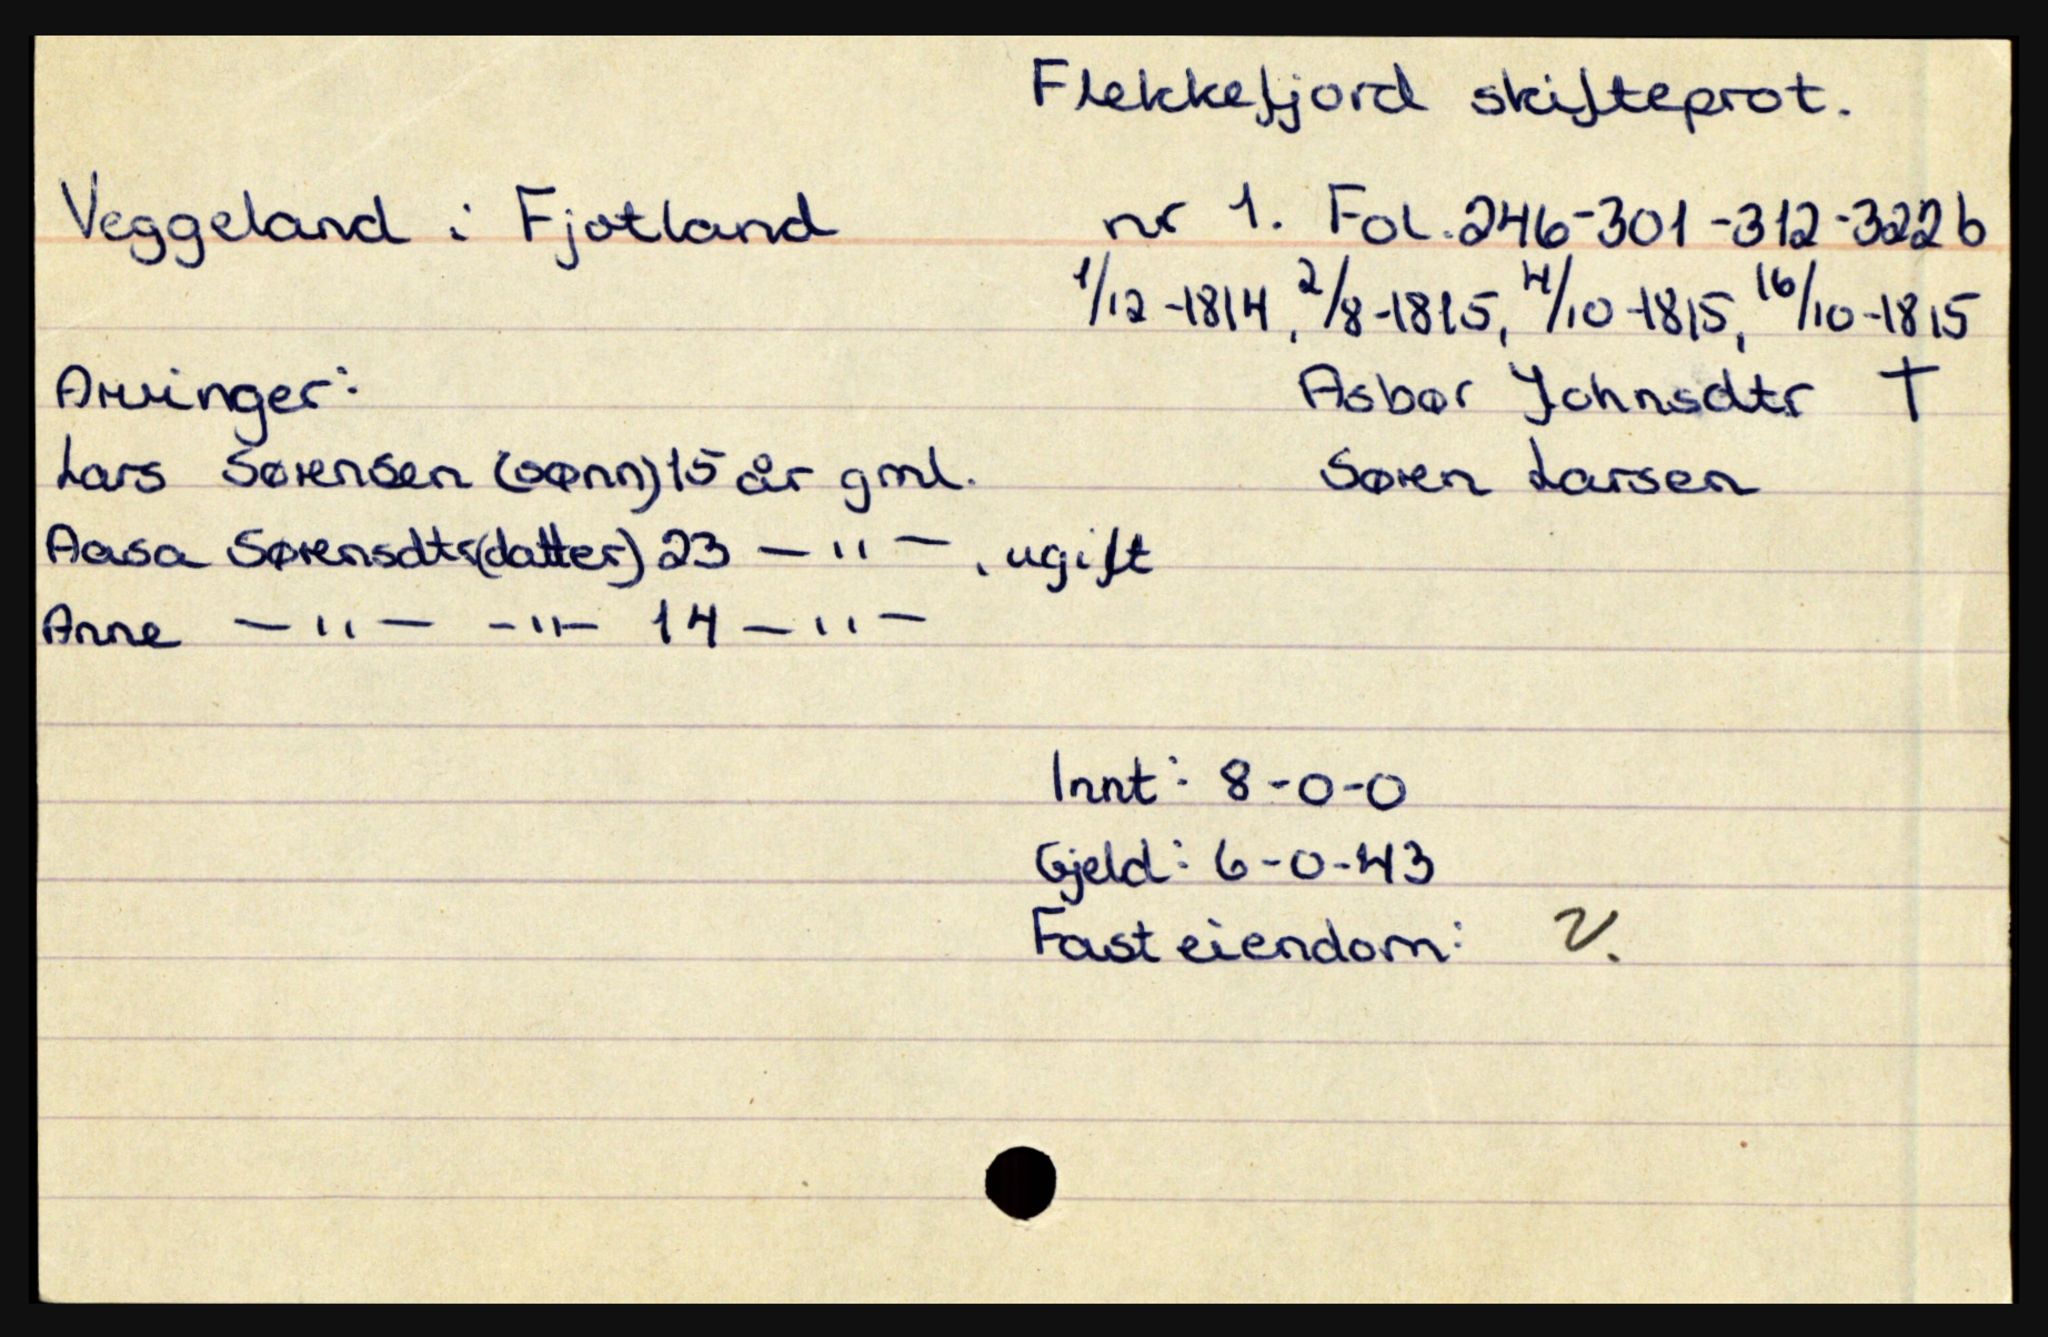 Flekkefjord skifteprot.
Veggeland i Fjotland nr 1. Fol. 246-301-312-322b
1/12-1814, 2/8-1815, 4/10-1815, 16/10-1815
Arvinger: Asbør Johnsdtr †
Lars Sørensen (sønn) 15 år gml. Søren Larsen
Aasa Sørensdtr (datter) 23 —"— , ugift
Anne —"— —"— 14 —"—
Innt: 8-0-0
Gjeld: 6-0-43
Fast eiendom: